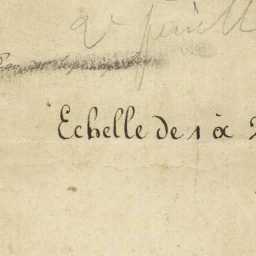 2e feuill
Echelle de 1 à 2